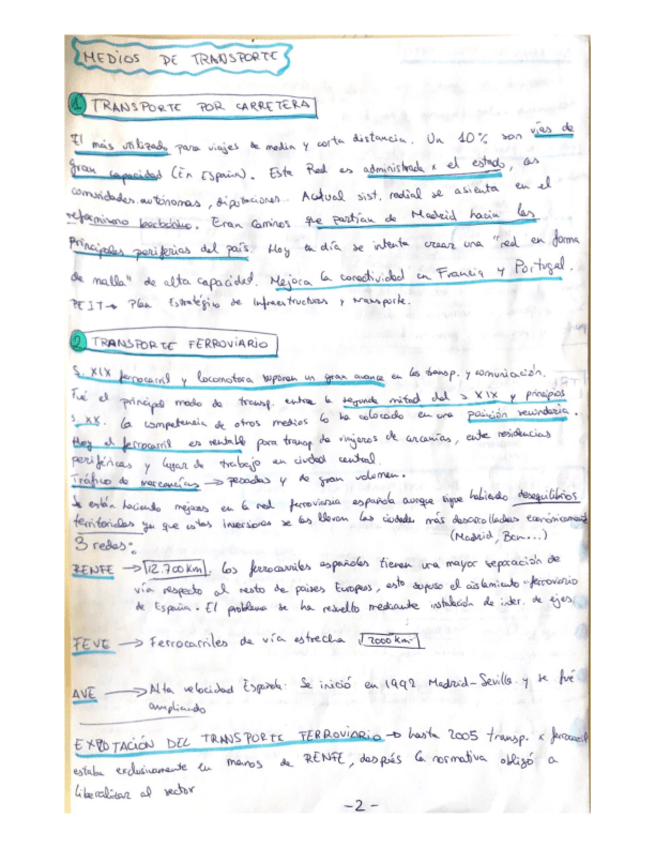 MEDIOS DE TRANSPORTE
1 TRANSPORTE POR CARRETERA
El más utilizado para viajes de media y corta distancia. Un 10% son vías de
gran capacidad (En España). Esta Red es administrada x el estado, as
comunidades autónomas, diputaciones. Actual sist. radial se asienta en el
reformismo borbónico. Eran caminos que partían de Madrid hacia las
principales periferias del país. Hoy en día se intenta crear una "red en forma
de malla" de alta capacidad. Mejora la conectividad en Francia y Portugal.
PEIT → Plan Estratégico de Infraestructuras y transporte.
2 TRANSPORTE FERROVIARIO
S. XIX ferrocarril y locomotora suponen un gran avance en los transp. y comunicación.
Fué el principal modo de transp. entre la segunda mitad del s XIX y principios
s. XX. La competencia de otros medios lo ha colocado en una posición secundaria.
Hoy el ferrocarril es rentable para transp de viajeros de cercanías, entre residencias
periféricas y lugar de trabajo en ciudad central.
Tráfico de mercancías → pesadas y de gran volumen.
Se están haciendo mejoras en la red ferroviaria española aunque sigue habiendo desequilibrios
territoriales ya que estas inversiones se las llevan las ciudades más desarrolladas económicamente
(Madrid, Bcn...)
3 redes:
RENFE → 12.700 km. Los ferrocarriles españoles tienen una mayor separación de
vía respecto al resto de países Europeos, esto supuso el aislamiento ferroviario
de España. El problema se ha resuelto mediante instalación de inter. de ejes
FEVE → Ferrocarriles de vía estrecha 2000 km
AVE → Alta velocidad Española. Se inició en 1992 Madrid-Sevilla y se fué
ampliando
EXPLOTACIÓN DEL TRANSPORTE FERROVIARIO → hasta 2005 transp. x ferrocarril
estaba exclusivamente en manos de RENFE, después la normativa obligó a
liberalizar al sector
-2-